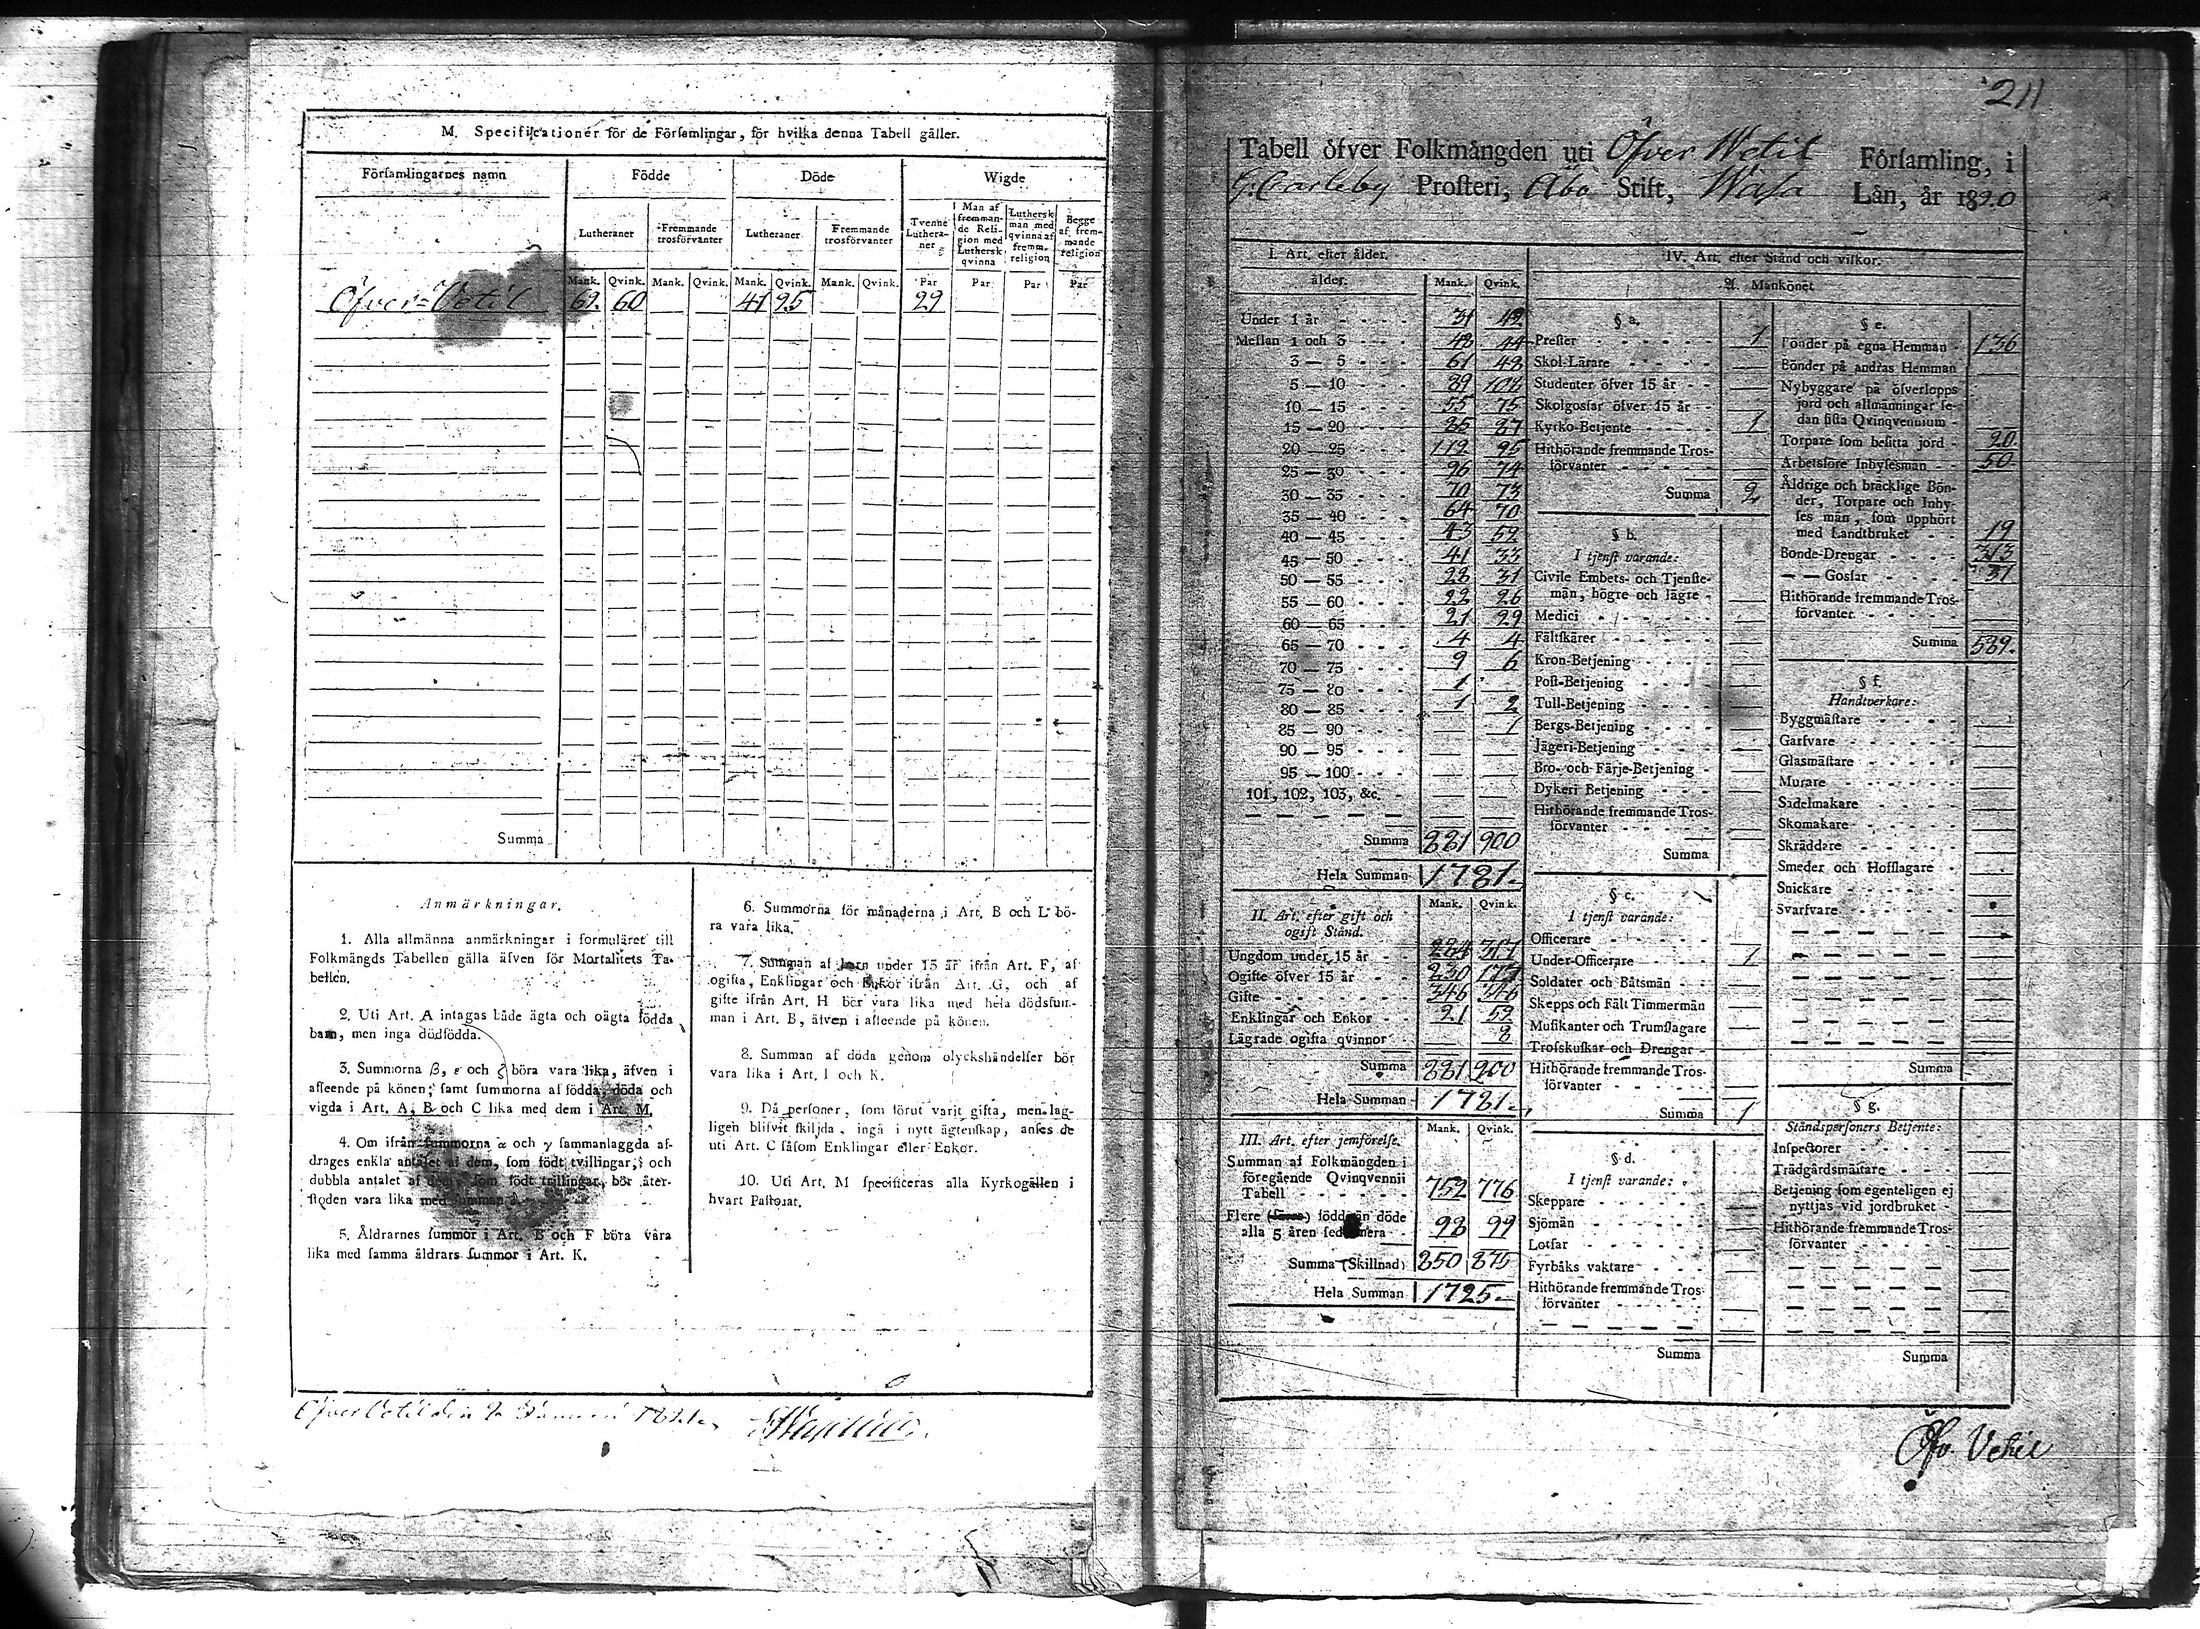 M. Specificationer för de Församlingar, för hvilka denna Tabell gäller.
Församlingarnes namn Födde Döde Wigde
Lutheraner Fremmande trosförvanter Lutheraner Fremmande trosförvanter Tvenne Lutheraner Man af fremmande Religion med Luthersk qvinna Luthersk man med qvinna af fremm. religion Begge af fremmande religion
Mank. Qvink. Mank. Qvink. Mank. Qvink. Mank. Qvink. Par Par Par Par
Öfver=Vetil 69. 60 41 25 29
Summa
Anmärkningar.
1. Alla allmänna anmärkningar i formuläret till
Folkmängds Tabellen gälla äfven för Mortalitets Ta-
bellen.
2. Uti Art. A intagas både ägta och oägta födda
barn, men inga dödfödda.
3. Summorna β, ε och ζ böra vara lika, äfven i
afseende på könen; samt summorna af födda, döda och
vigda i Art. A, B och C lika med dem i Art. M.
4. Om ifrån summorna α och γ sammanlaggda af-
drages enkla antalet af dem, som födt tvillingar, och
dubbla antalet af dem, som födt trillingar, bör åter-
stoden vara lika med summan
5. Åldrarnes summor i Art. B och F böra vara
lika med samma åldrars summor i Art. K.
6. Summorna för månaderna i Art. B och L bö-
ra vara lika.
7. Summan af barn under 15 år ifrån Art. F, af
ogifta, Enklingar och Enkor ifrån Art. G, och af
gifte ifrån Art. H bör vara lika med hela dödsfum-
man i Art. B, äfven i afseende på könen.
8. Summan af döda genom olyckshändelser bör
vara lika i Art. I och K.
9. Då personer, som förut varit gifta, men lag-
ligen blifvit skiljda, ingå i nytt ägtenskap, anses de
uti Art. C såsom Enklingar eller Enkor.
10. Uti Art. M specificeras alla Kyrkogällen i
hvart Pastorat.
Öfver Vetil den
211
Tabell öfver Folkmängden uti Öfver Wetil Församling, i
G: Carleby Prosteri, Åbo Stift, Wasa Län, år 1820
I. Art. efter ålder.
ålder. Mank. Qvink.
Under 1 år 31 42
Mellan 1 och 3 48 44
3 — 5 61 48
5 — 10 89 108
10 — 15 55 75
15 — 20 85 87
20 — 25 112 95
25 — 30 96 74
30 — 35 70 73
35 — 40 64 70
40 — 45 43 52
45 — 50 41 33
50 — 55 28 31
55 — 60 22 26
60 — 65 21 29
65 — 70 4 4
70 — 75 9 6
75 — 80 1
80 — 85 1 2
85 — 90 1
90 — 95
95 — 100
101, 102, 103, &c.
Summa 881 900
Hela Summan 1781.
II. Art. efter gift och
ogift Stånd. Mank. Qvink.
Ungdom under 15 år 284 317
Ogifte öfver 15 år 230 177
Gifte 346 346
Enklingar och Enkor 21 52
Lägrade ogifta qvinnor 8
Summa 881 900
Hela Summan 1781.
III. Art. efter jemförelse. Mank. Qvink.
Summan af Folkmängden i
föregående Qvinqvennii
Tabell 752 776
Flere födde än döde
alla 5 åren sednera 98 99
Summa (Skillnad) 850 875
Hela Summan 1725.
IV. Art. efter Stånd och vilkor.
A. Mankönet
§ a.
Prester 1
Skol-Lärare
Studenter öfver 15 år
Skolgossar öfver 15 år
Kyrko-Betjente 1
Hithörande fremmande Tros-
förvanter
Summa 2
§ b.
I tjenst varande:
Civile Embets- och Tjenste-
män, högre och lägre
Medici
Fältskärer
Kron-Betjening
Post-Betjening
Tull-Betjening
Bergs-Betjening
Jägeri-Betjening
Bro- och Färje-Betjening
Dykeri Betjening
Hithörande fremmande Tros-
förvanter
Summa
§ c.
I tjenst varande:
Officerare
Under-Officerare 1
Soldater och Båtsmän
Skepps och Fält Timmermän
Musikanter och Trumslagare
Trosskuskar och Drengar
Hithörande fremmande Tros-
förvanter
Summa 1
§ d.
I tjenst varande:
Skeppare
Sjömän
Lotsar
Fyrbåks vaktare
Hithörande fremmande Tros-
förvanter
Summa
§ e.
Bönder på egna Hemman 136
Bönder på andras Hemman
Nybyggare på öfverlopps
jord och allmänningar se-
dan sista Qvinqvennium
Torpare som besitta jord 20
Arbetsföre Inhysesmän 50
Åldrige och bräcklige Bön-
der, Torpare och Inhy-
ses män, som upphört
med Landtbruket 19
Bonde-Drengar 313
— — Gossar 51
Hithörande fremmande Tros-
förvanter
Summa 589.
§ f.
Handtverkare:
Byggmästare
Garfvare
Glasmästare
Murare
Sadelmakare
Skomakare
Skräddare
Smeder och Hofslagare
Snickare
Svarfvare
Summa
§ g.
Ståndspersoners Betjente:
Inspectorer
Trädgårdsmästare
Betjening som egenteligen ej
nyttjas vid jordbruket
Hithörande fremmande Tros-
förvanter
Summa
Öfv. Vetil